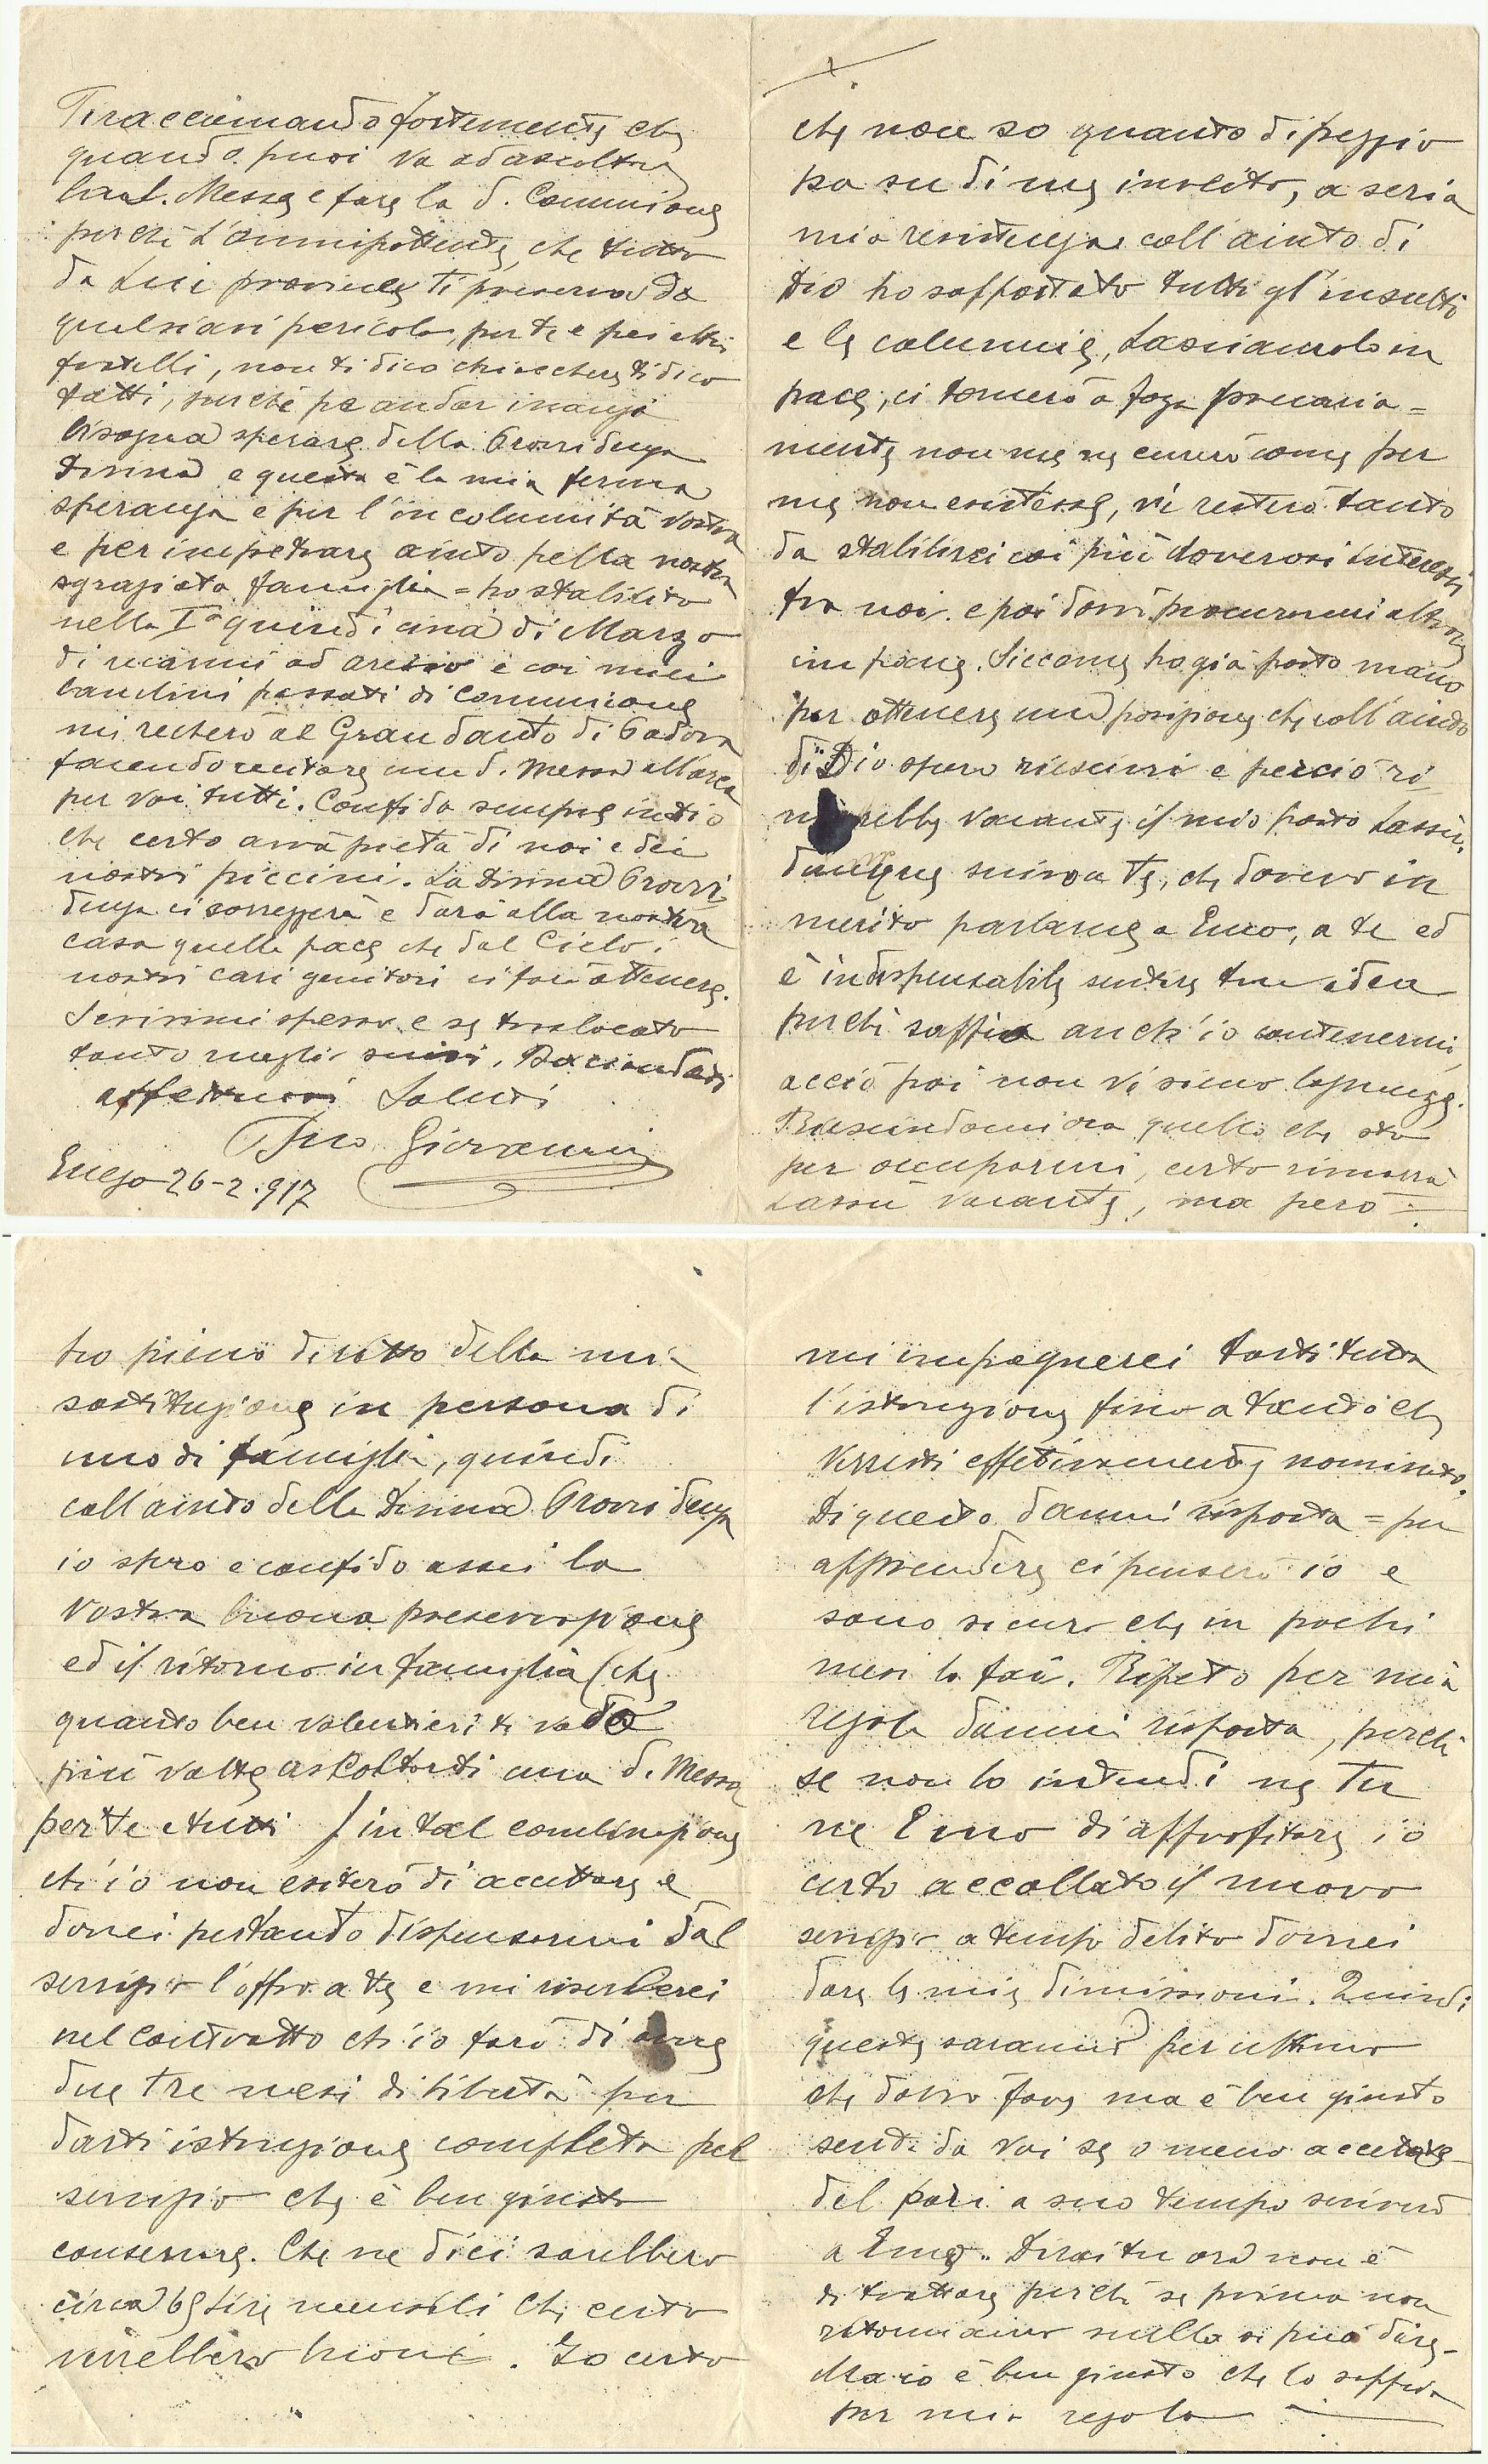 Ti raccomando fortemente che
quando puoi va ad ascoltare
la S. Messa e fare la S. Comunione
perché L'Onnipottente, che tutto
da Lui proviene Ti preserva da
qualsiasi pericolo, per te e pei altri
fratelli, non ti dico chiacchere ti dico
fatti, perché pe andar inanzi
bisogna sperare della Provvidenza
Divina e questa è la mia ferma
speranza e per l'incolumità vostra
e per impetrare aiuto pella nostra
sgraziata famiglia = ho stabilito
nella Iª quindicina di Marzo
di recarmi ad e coi miei
bambini passati di Comunione
mi recherò al Gran Santo di Padova
facendo cantare una S. Messa all'arca
per voi tutti. Confida sempre in Dio
che certo avrà pietà di noi e dei
nostri piccini. La Divina Provvi
denza ci sorreggerà e darà alla nostra
casa quella pace che dal Cielo i
nostri cari genitori ci farà ottenere.
Scrivimi spesso e se traslocato
tanto meglio scrivi. Baciandoti
affettuosi Saluti
Tuo Giovanni
Enego 26-2.917
che non so quanto di peggio
pesa su di me inveito, a seria
mia resistenza coll'aiuto di
Dio ho soffortato tutti gl'insulti
e le calunnie, Lasciamolo in
pace, ci tornerò a foza precaria=
mente non me ne curerò come per
me non esistesse, vi resterò tanto
da stabilirci coi più doverosi interessi
fra noi e poi dovrò procurarmi altrove
impiego. Siccome ho già posto mano
per ottenere una posizione che coll'aiuto
di Dio spero riescirvi e perciò ri
marebbe vacante il mio posto Lassù,
dunque scrivo a Te, che dovevo in
merito parlarne a Enio, a te ed
è indispensabile sentire tua idea
perché sappia anch'io contenermi,
acciò poi non vi sieno lagnanze.
Riescindomi ora quello che sto
per occuparmi, certo rimarrà
Lassù vacante, ma però =
ho pieno diritto della mia
sostituzione in persona di
uno di famiglia, quindi
coll'aiuto della Divina Provvidenza
io spero e confido assai la
vostra buona preservazione
ed il ritorno in famiglia (che
quanto ben volentieri ti vado
più volte ascoltarti una S. Messa
per te e tutti) in tal combinazione
ch'io non esiterò di accettare e
dovrei pertanto dispensarmi dal
servizio l'offro a te e mi riserberei
nel contratto ch'io farò di avere
due tre mesi di libertà per
darti istruzione completa pel
servizio che è ben giusto
conservare. Che ne dici sarebbero
circa Lire mensili che certo
verebbero buoni. Io certo
mi impegnerei darti tutta
l'istruzione fino a tanto che
verresti effetivamente nominato.
Di questo dammi risposta = per
apprendere ci penserò io e
sono sicuro che in pochi
mesi lo fai. Ripeto per mia
regola dammi risposta, perché
se non lo intendi ne Tu
ne Enio di approfitare io
certo accollato il nuovo
servizio a tempo debito dovrei
dare le mie dimissioni. Quindi
queste saranno per ultimo
che dovrò fare ma è ben giusto
senti da voi se o meno accettate
del pari a suo tempo scriverò
a Enio. Dirai tu ora non è
di trattare perché se prima non
ritorniamo nulla si può dire
Ma io è ben giusto che lo sappia
per mia regola